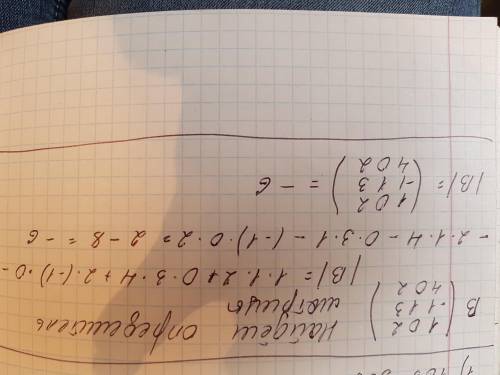 B (1 0 2
-1 1 3
4 0 2) Найдём определитель
матрицы
|B| = 1·1·2 + 0·3·4 + 2·(-1)·0 -
- 2·1·4 - 0·3·1 - (-1)·0·2 = 2 - 8 = - 6
|B| = (1 0 2
-1 1 3
4 0 2) = - 6